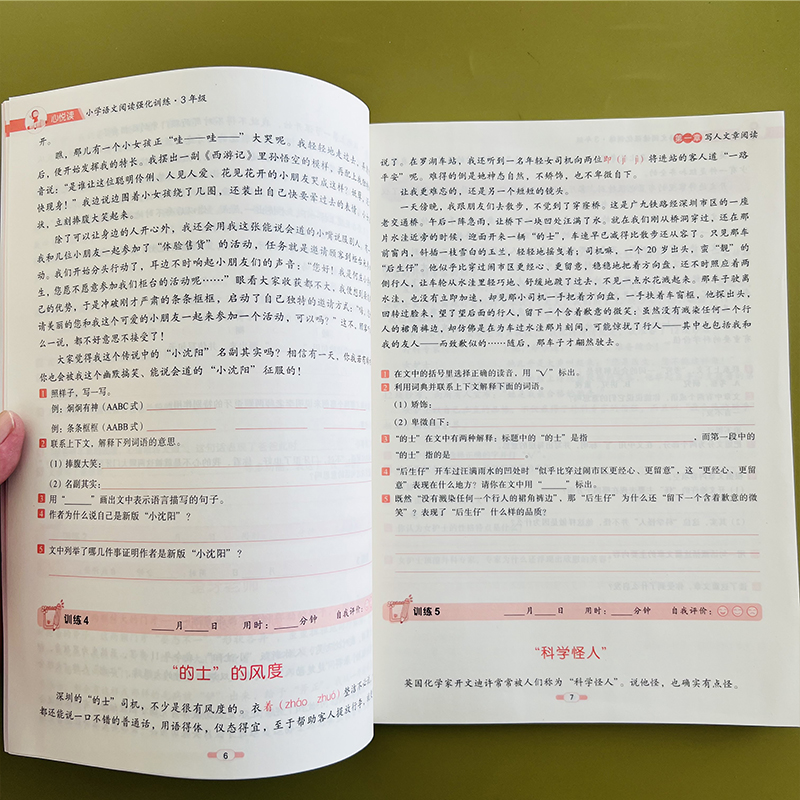 心悦读 小学语文阅读强化训练·3年级
开。
瞧，那儿有一个小女孩正“哇——哇——”大哭呢。我轻轻地走过去，
后，便开始发挥我的特长。我摆出一副《西游记》里孙悟空的模样，再配上
音说：“是谁让这位聪明伶俐、人见人爱、花见花开的小朋友哭成这样？
快现身！”我边说边围着小女孩绕了几圈，还装出自己快要晕过去的表情。
状，立刻捧腹大笑起来。
除了可以让身边的人开心外，我还会用我这张能说会道的小嘴说服别人。
我和几位小朋友一起参加了“体验售货”的活动，任务就是邀请顾客到柜台
动。我们开始分头行动了，耳边不时响起小朋友们的声音：“您好！我是
生，您愿不愿意参加我们柜台的活动呢……”眼看大家收获都不大，我便想到
己的优势，于是冲破刚才严肃的条条框框，启动了自己独特的邀请方式：
请美丽的您和我这个可爱的小朋友一起来参加一个活动，可以吗？”这不，
么一说，都不好意思不接受了！
大家觉得我这个传说中的“小沈阳”名副其实吗？相信有一天，你我
你也会被我这个幽默搞笑、能说会道的“小沈阳”征服的！
1 照样子，写一写。
例：炯炯有神（AABC式）
例：条条框框（AABB式）
2 联系上下文，解释下列词语的意思。
（1）捧腹大笑：
（2）名副其实：
3 用“______”画出文中表示语言描写的句子。
4 作者为什么说自己是新版“小沈阳”？
5 文中列举了哪几件事证明作者是新版“小沈阳”？
训练4 ____月____日 用时：____分钟 自我评价：
“的士”的风度
深圳的“的士”司机，不少是很有风度的。衣着（zháo zhuó）整洁不必
都还能说一口不错的普通话，用语得体，仪态得宜，至于帮助客人提放行李、
6
第一章 写人文章阅读
说了。在罗湖车站，我还听到一名年轻女司机向两位即（jí jì）将进站的客人道“一路
平安”呢。难得的倒是她神态自然，不矫饰，也不卑微自下。
让我更难忘的，还是另一个短短的镜头。
一天傍晚，我跟朋友们去散步，不觉到了穿窿桥。这是广九铁路经深圳市区的一座
老交通桥。午后一阵急雨，让桥下一块凹处汪满了水。就在我们刚从桥洞穿过，还在那
片水洼近旁的时候，迎面开来一辆“的士”，车速早已减得比散步还从容了。只见那车
前窗内，斜插一枝雪白的玉兰，轻轻地摇曳着；司机嘛，一个20岁出头，蛮“靓”的
“后生仔”。他似乎比穿过闹市区更经心、更留意，稳稳地把着方向盘，还不时照应着两
侧行人，让车轮从水洼里轻巧地、舒缓地渡了过去，不见一点水花溅起来。那车子驶离
水洼，也没有立即加速，却见那小司机一手把着方向盘，一手扶着车窗框，他探出头，
回转过脸来，望了望后面的行人，留下一个含着歉意的微笑；虽然没有溅染任何一个行
人的裙角裤边，却仿佛是在为车过水洼那片刻间，可能惊扰了行人——其中也包括我和
我的友人——而致歉似的……随后，那车子才翩然驶去。
1 在文中的括号里选择正确的读音，用“√”标出。
2 利用词典并联系上下文解释下面的词语。
（1）矫饰：
（2）卑微自下：
3 “的士”在文中有两种解释：标题中的“的士”是指______，而第一段中的
“的士”指的是______。
4 “后生仔”开车过汪满雨水的凹处时“似乎比穿过闹市区更经心、更留意”，这“更经心、更留
意”表现在什么地方？请你在文中用“______”标出。
5 既然“没有溅染任何一个行人的裙角裤边”，那“后生仔”为什么还“留下一个含着歉意的微
笑”？表现了“后生仔”什么样的品质？
训练5 ____月____日 用时：____分钟 自我评价：
“科学怪人”
英国化学家开文迪许常常被人们称为“科学怪人”。说他怪，也确实有点怪。
7